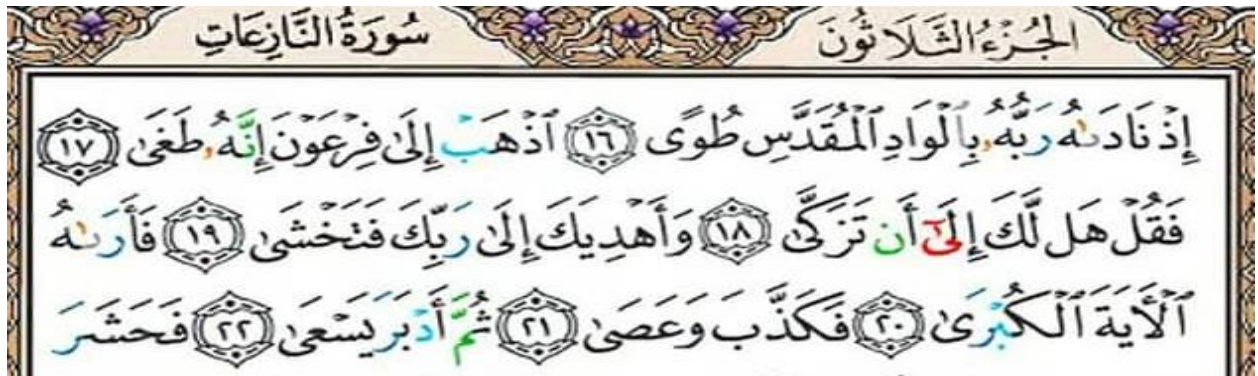 الجُزْءُ الثَّلَاثُونَ سُورَةُ النَّازِعَاتِ
إِذْ نَادَىٰهُ رَبُّهُۥ بِٱلْوَادِ ٱلْمُقَدَّسِ طُوًى ١٦ ٱذْهَبْ إِلَىٰ فِرْعَوْنَ إِنَّهُۥ طَغَىٰ ١٧
فَقُلْ هَل لَّكَ إِلَىٰٓ أَن تَزَكَّىٰ ١٨ وَأَهْدِيَكَ إِلَىٰ رَبِّكَ فَتَخْشَىٰ ١٩ فَأَرَىٰهُ
ٱلْأَيَةَ ٱلْكُبْرَىٰ ٢٠ فَكَذَّبَ وَعَصَىٰ ٢١ ثُمَّ أَدْبَرَ يَسْعَىٰ ٢٢ فَحَشَرَ